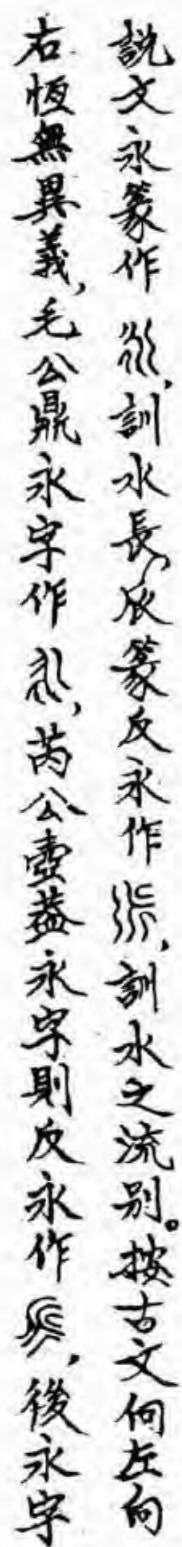 說文永篆作，訓水長，𠂢篆反永作，訓水之流別。按古文向左向
右恆無異義，毛公鼎永字作，芮公壺蓋永字則反永作，後永字